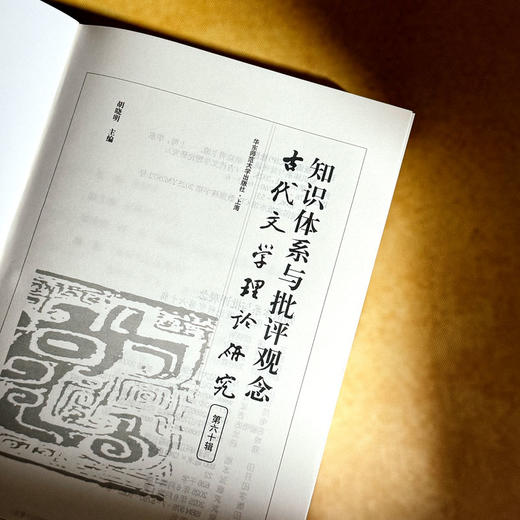 知识体系与批评观念
古代文学理论研究
第六十辑
华东师范大学出版社·上海
胡晓明 主编